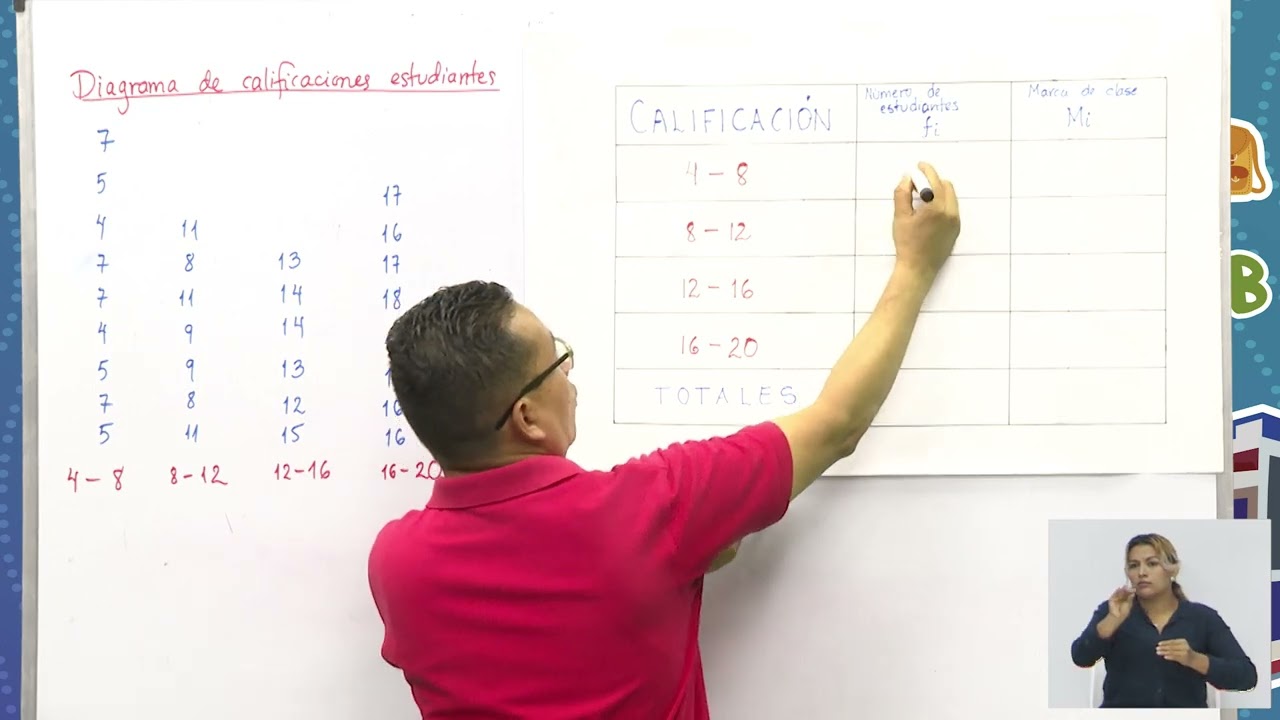 Diagrama de calificaciones estudiantes
7
5 17
4 11 16
7 8 13 17
7 11 14 18
4 9 14
5 9 13
7 8 12 16
5 11 15 16
4 - 8 8 - 12 12 - 16 16 - 20
CALIFICACIÓN
Número de
estudiantes
fi
Marca de clase
Mi
4 - 8
8 - 12
12 - 16
16 - 20
TOTALES
B